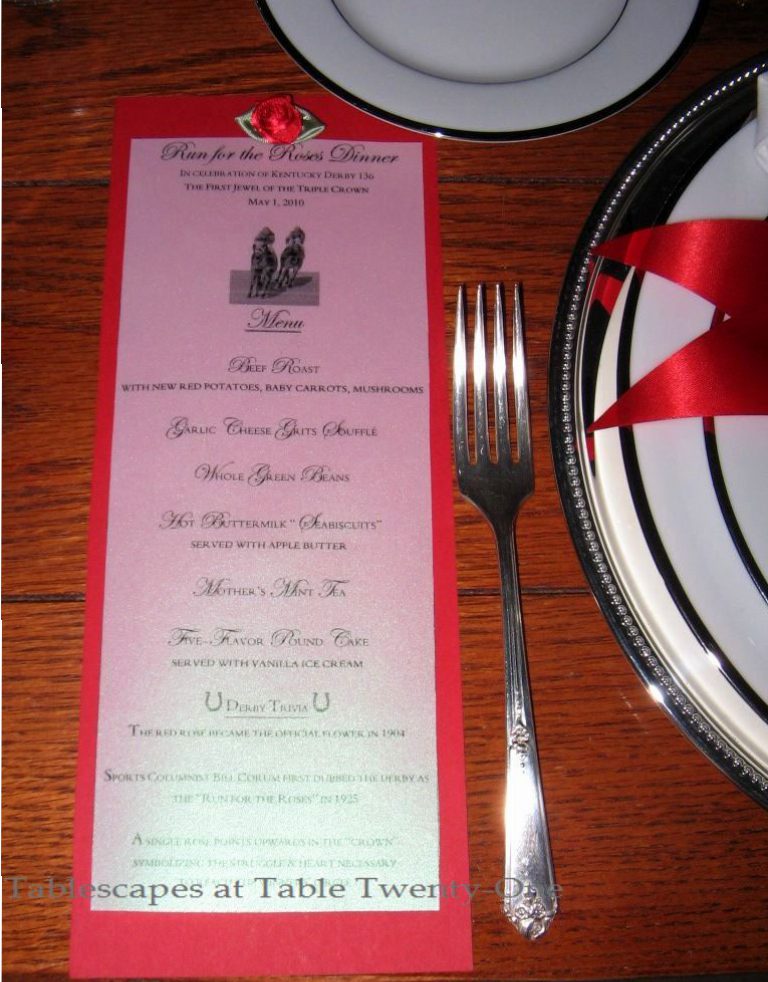 Run for the Roses Dinner
In celebration of Kentucky Derby 136
The First Jewel of the Triple Crown
May 1, 2010
Menu
Beef Roast
with new red potatoes, baby carrots, mushrooms
Garlic Cheese Grits Soufflé
Whole Green Beans
Hot Buttermilk "Seabiscuits"
served with apple butter
Mother's Mint Tea
Five-Flavor Pound Cake
served with vanilla ice cream
Derby Trivia
The red rose became the official flower in 1904
Sports Columnist Bill Corum first dubbed the derby as
the "Run for the Roses" in 1925
A single rose points upwards in the "crown"
symbolizing the struggle & heart necessary
Tablescapes at Table Twenty-One